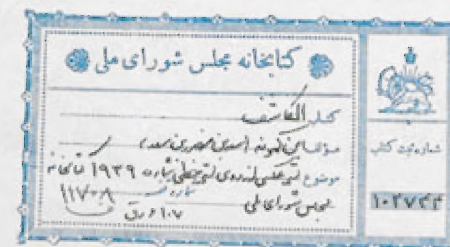 کتابخانه مجلس شورای ملی
کتاب الکاشف
مؤلف ابن کمونه (سعد بن منصور بن سعد)
موضوع نسخه عکسی از روی نسخه خطی شماره ۱۹۳۹ کتابخانه
مجلس شورای ملی
۱۰۷ ورق
۱۱۷۰۸
شماره ثبت کتاب
۱۰۲۷۴۴